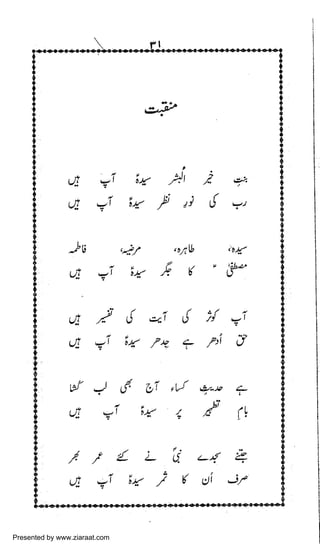 ۳۱
منقبت
بنتِ خیر البشر سیدہؑ آپ ہیں
رب کی نورِ نظر سیدہؑ آپ ہیں
سیدہ، طاہرہ، مرضیہ، فاطمہ
مصطفیٰؐ کا جگر سیدہؑ آپ ہیں
آپ کوثر کی آیت کی تفسیر ہیں
حق اُدھر ہے جدھر سیدہؑ آپ ہیں
ہے حدیثِ کساء آج بھی لب کشا
بامِ تطہیر پر سیدہؑ آپ ہیں
جتنے سجدے نبیؐ نے کئے عمر بھر
صرف اُن کا ثمر سیدہؑ آپ ہیں
Presented by www.ziaraat.com